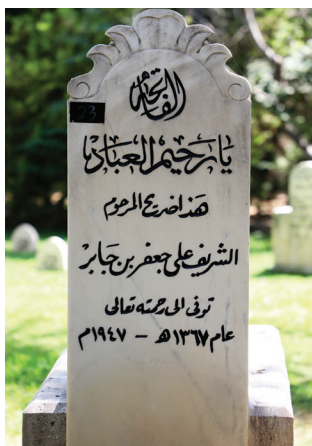 الفاتحة
23
يا رحيم العباد
هذا ضريح المرحوم
الشريف علي جعفر بن جابر
توفى الى رحمته تعالى
عام ١٣٦٧هـ - ١٩٤٧م